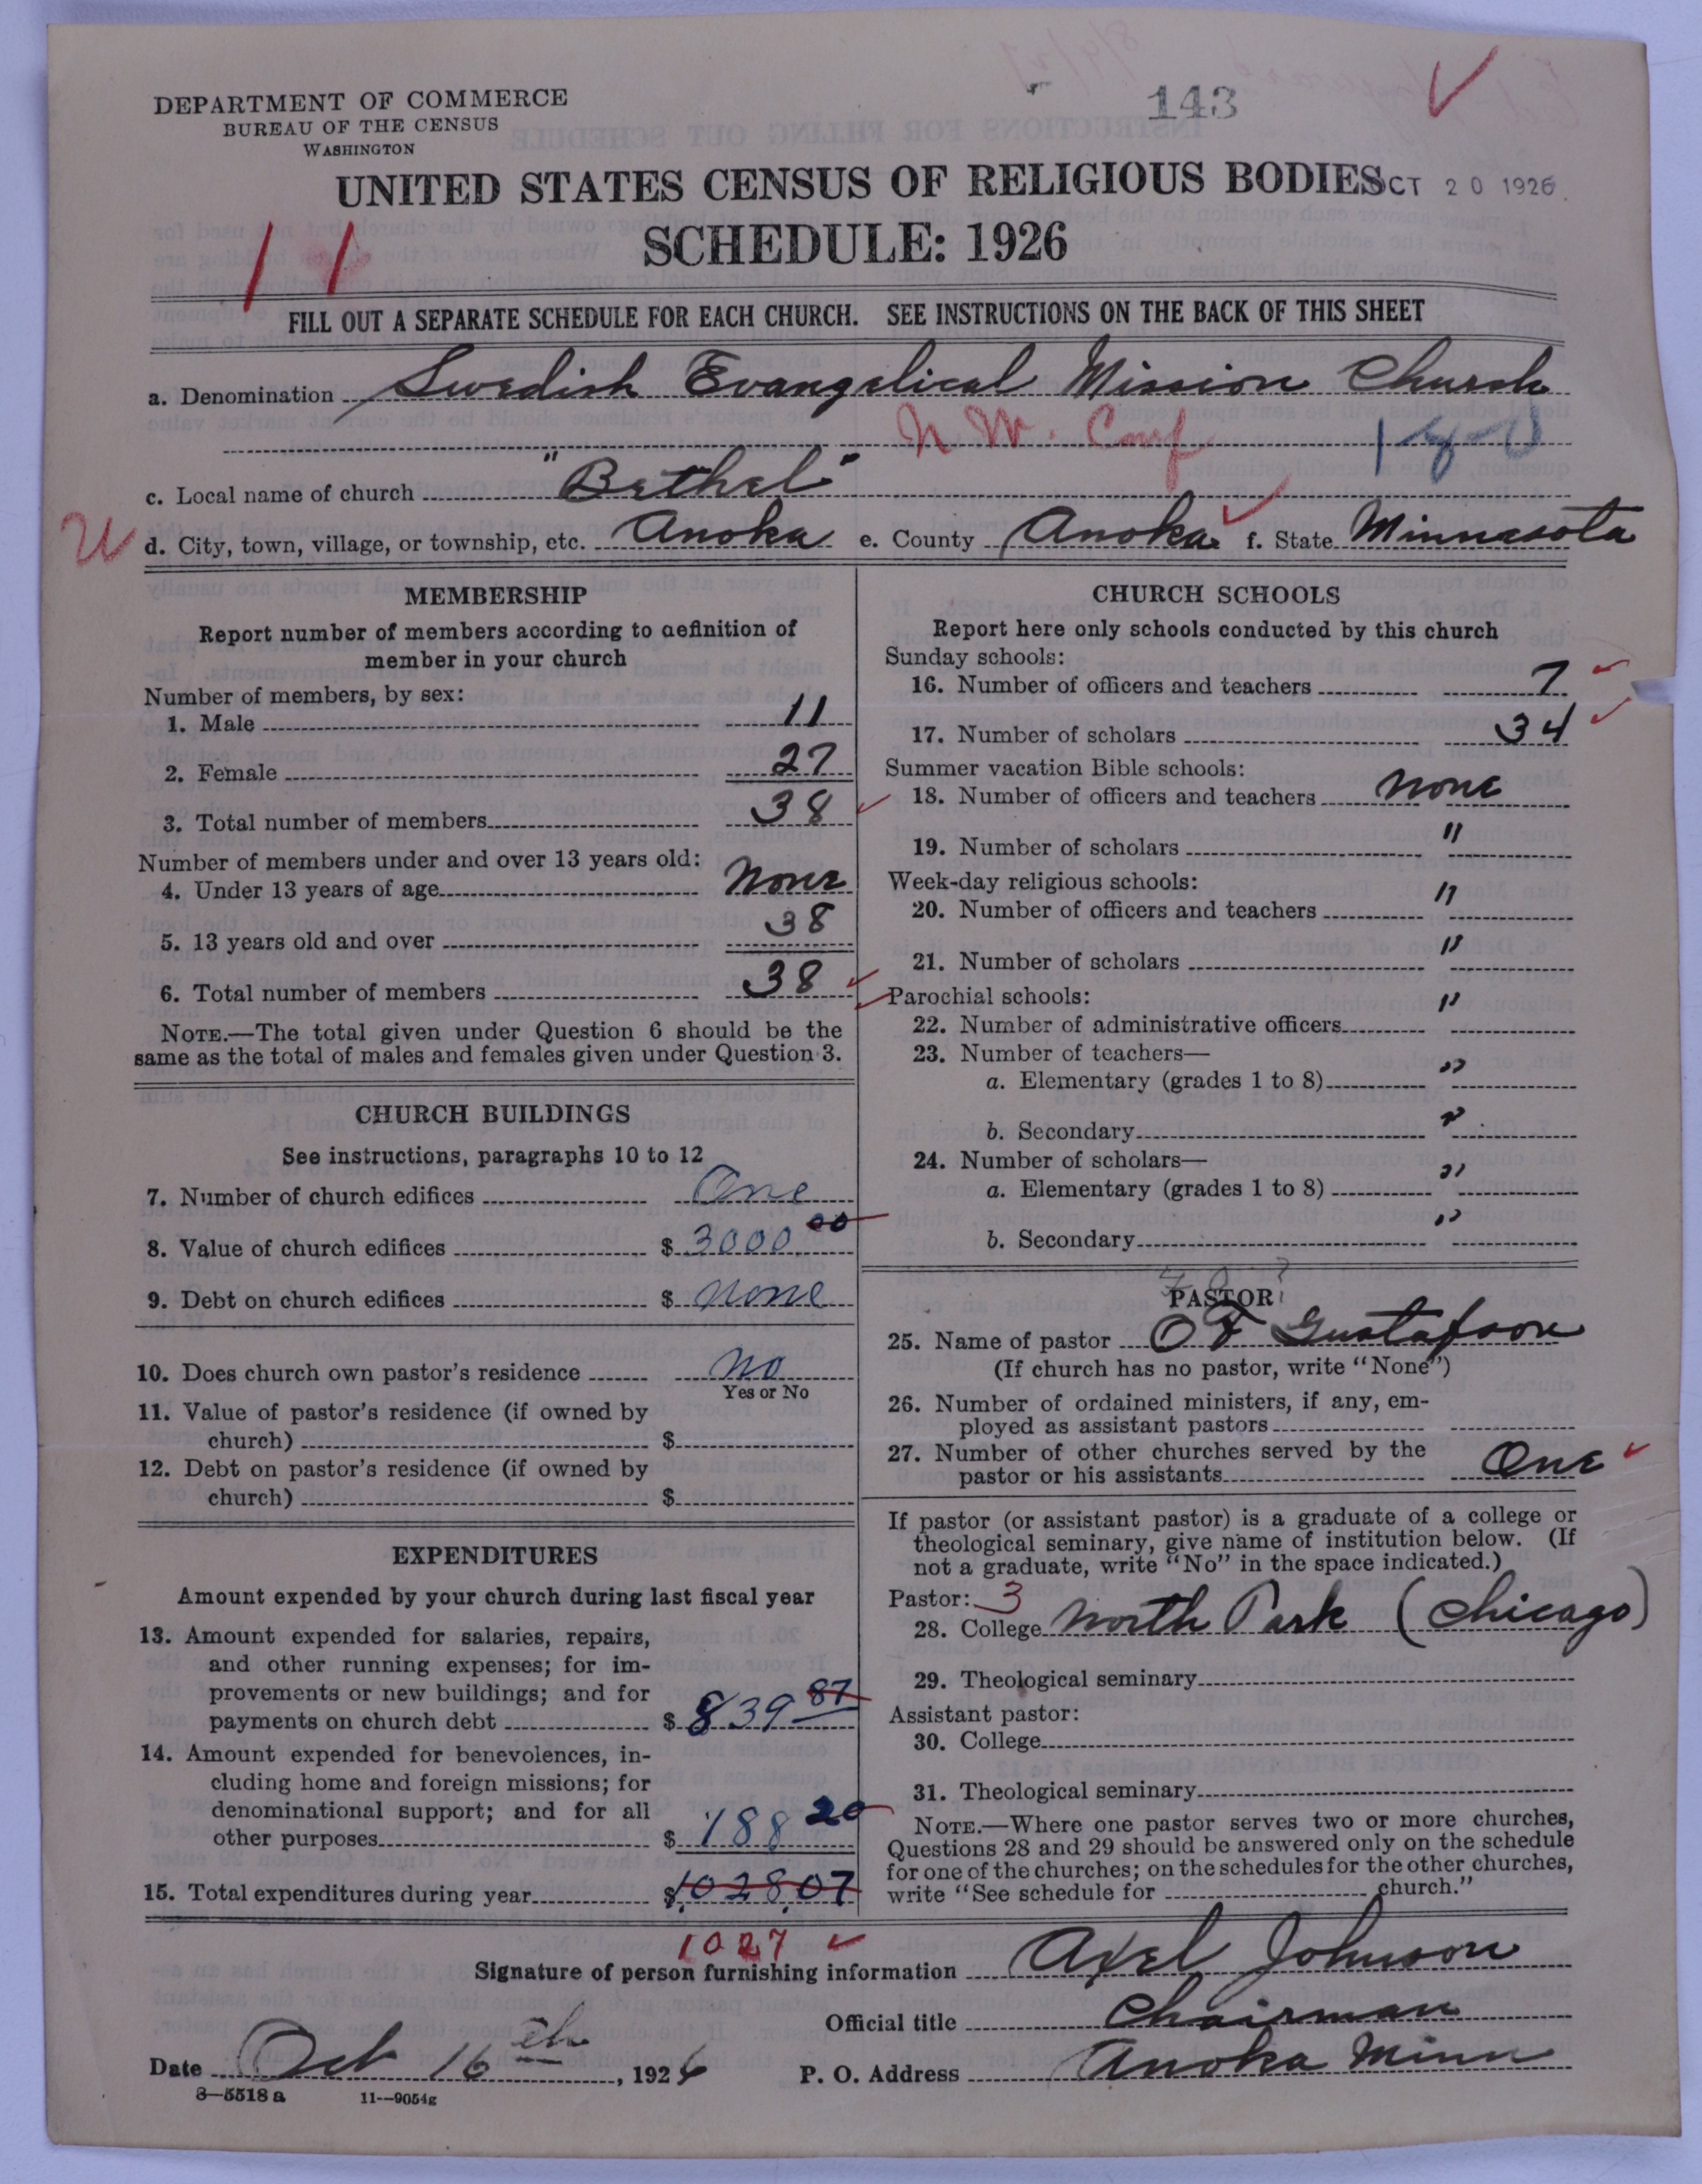 DEPARTMENT OF COMMERCE
BUREAU OF THE CENSUS
WASHINGTON
143
UNITED STATES CENSUS OF RELIGIOUS BODIES
OCT 20 1926
SCHEDULE: 1926
11
FILL OUT A SEPARATE SCHEDULE FOR EACH CHURCH. SEE INSTRUCTIONS ON THE BACK OF THIS SHEET
a. Denomination Swedish Evangelical Mission Church
N.W. Conf
c. Local name of church "Bethel"
d. City, town, village, or township, etc. Anoka e. County Anoka f. State Minnesota
MEMBERSHIP
Report number of members according to definition of
member in your church
Number of members, by sex:
1. Male 11
2. Female 27
3. Total number of members 38
Number of members under and over 13 years old:
4. Under 13 years of age None
5. 13 years old and over 38
6. Total number of members 38
NOTE.—The total given under Question 6 should be the
same as the total of males and females given under Question 3.
CHURCH BUILDINGS
See instructions, paragraphs 10 to 12
7. Number of church edifices One
8. Value of church edifices $ 3000.00
9. Debt on church edifices $ None
10. Does church own pastor's residence No
Yes or No
11. Value of pastor's residence (if owned by
church) $
12. Debt on pastor's residence (if owned by
church) $
EXPENDITURES
Amount expended by your church during last fiscal year
13. Amount expended for salaries, repairs,
and other running expenses; for im-
provements or new buildings; and for
payments on church debt $ 839 87
14. Amount expended for benevolences, in-
cluding home and foreign missions; for
denominational support; and for all
other purposes $ 188 20
15. Total expenditures during year $1,028.07
1027
CHURCH SCHOOLS
Report here only schools conducted by this church
Sunday schools:
16. Number of officers and teachers 7
17. Number of scholars 34
Summer vacation Bible schools:
18. Number of officers and teachers None
19. Number of scholars "
Week-day religious schools:
20. Number of officers and teachers "
21. Number of scholars "
Parochial schools:
22. Number of administrative officers "
23. Number of teachers—
a. Elementary (grades 1 to 8) "
b. Secondary "
24. Number of scholars—
a. Elementary (grades 1 to 8) "
b. Secondary "
PASTOR
25. Name of pastor O F Gustafson
(If church has no pastor, write "None")
26. Number of ordained ministers, if any, em-
ployed as assistant pastors
27. Number of other churches served by the
pastor or his assistants One
If pastor (or assistant pastor) is a graduate of a college or
theological seminary, give name of institution below. (If
not a graduate, write "No" in the space indicated.)
Pastor: 3
28. College North Park (Chicago)
29. Theological seminary
Assistant pastor:
30. College
31. Theological seminary
NOTE.—Where one pastor serves two or more churches,
Questions 28 and 29 should be answered only on the schedule
for one of the churches; on the schedules for the other churches,
write "See schedule for church."
Signature of person furnishing information Axel Johnson
Official title Chairman
Date Oct 16th, 1926 P. O. Address Anoka Minn
8—5518 a 11—9054g